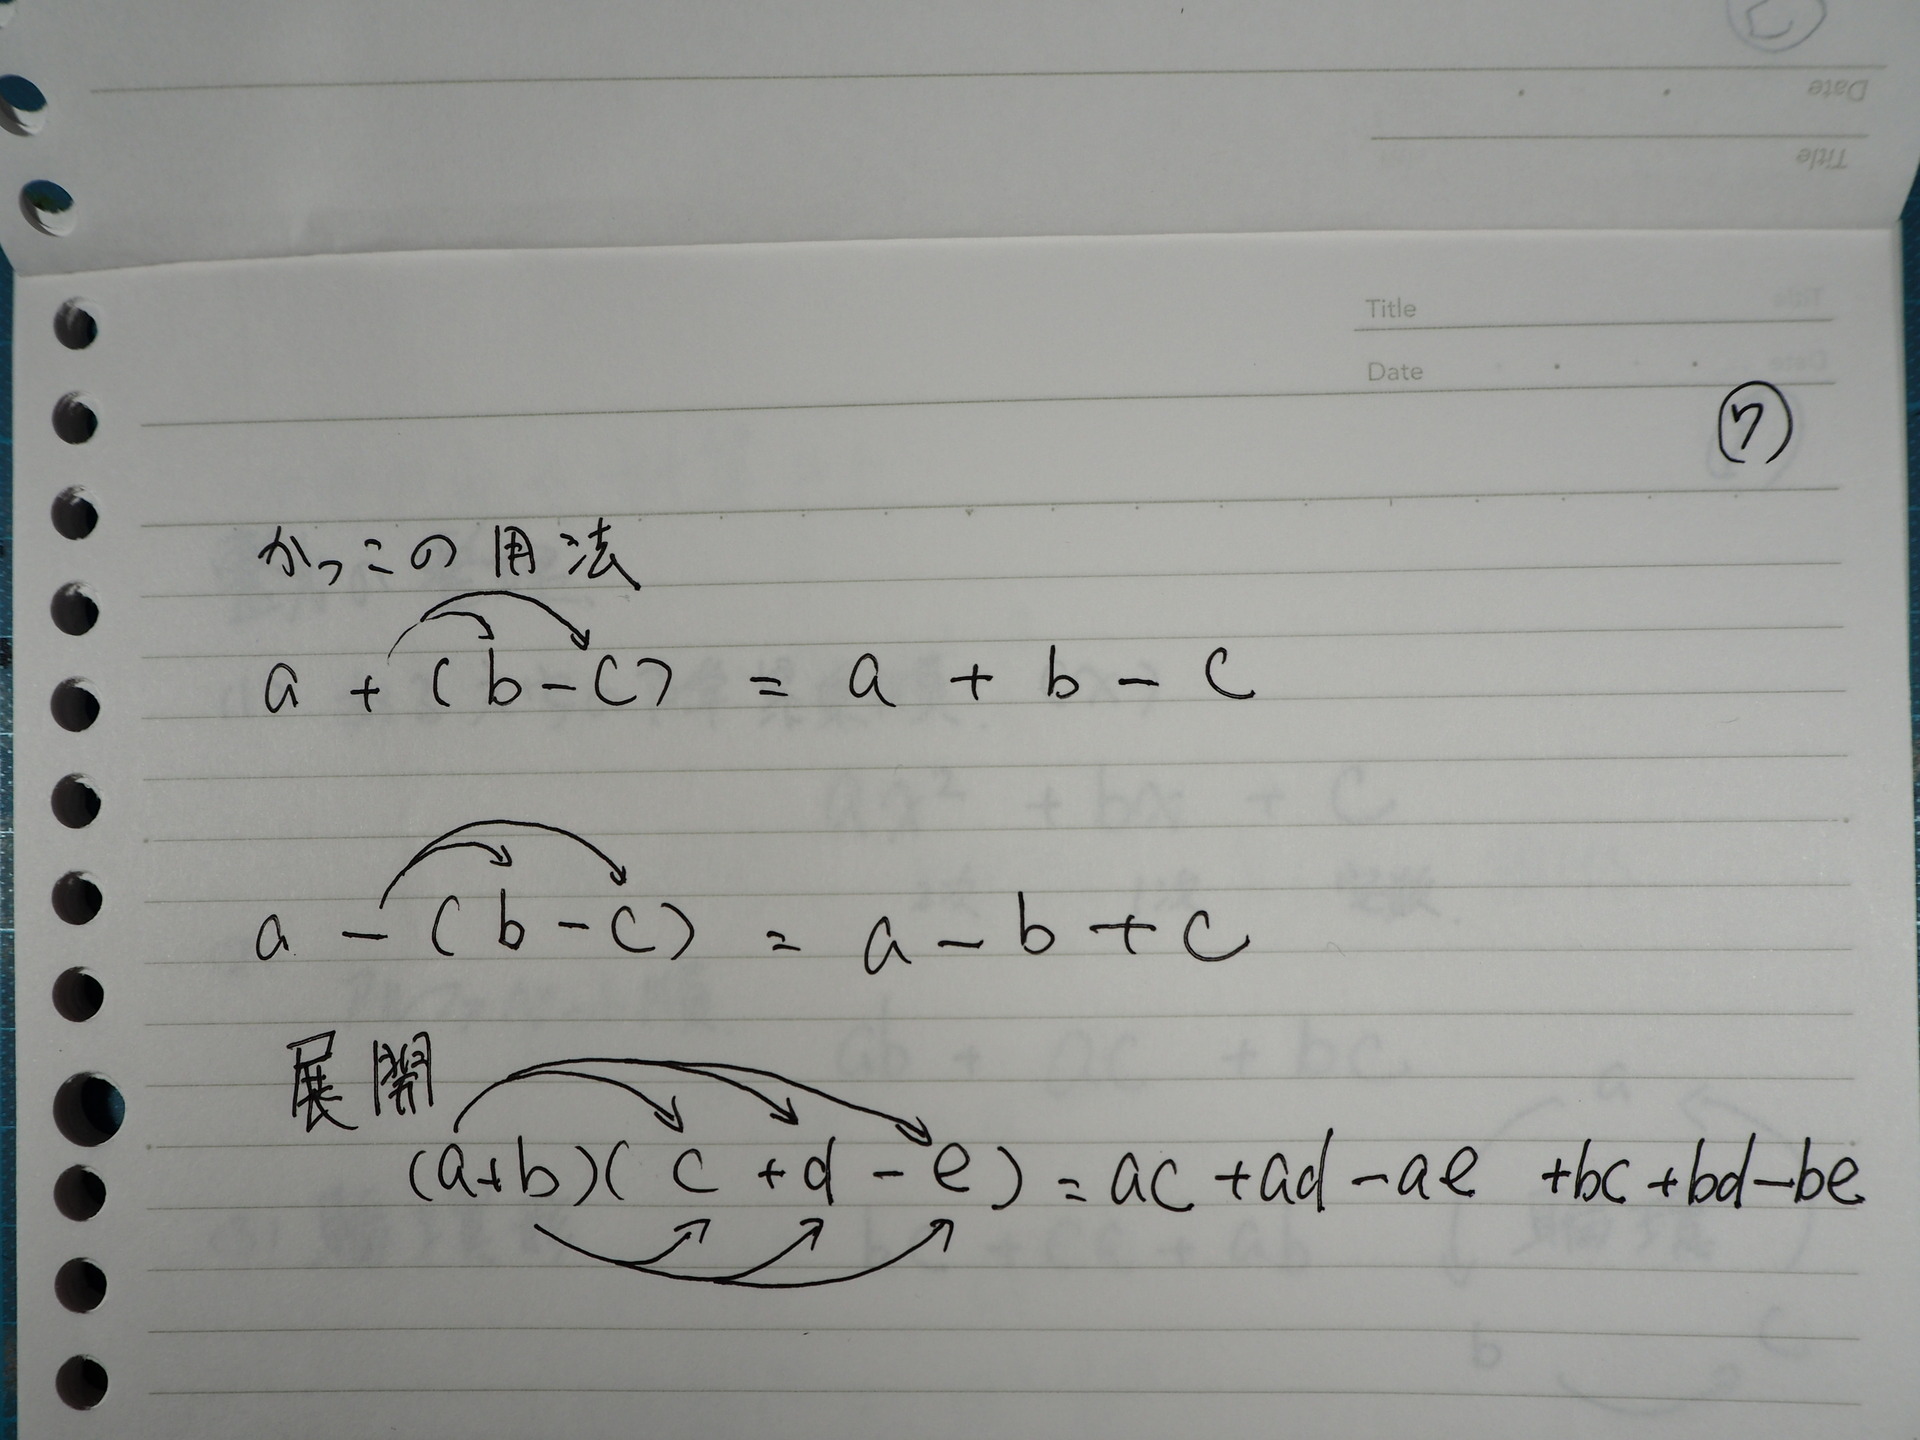 Date
Title
Title
Date
⑦
かっこの用法
a + (b - c) = a + b - c
a - (b - c) = a - b + c
展開
(a+b)(c + d - e) = ac + ad - ae + bc + bd - be